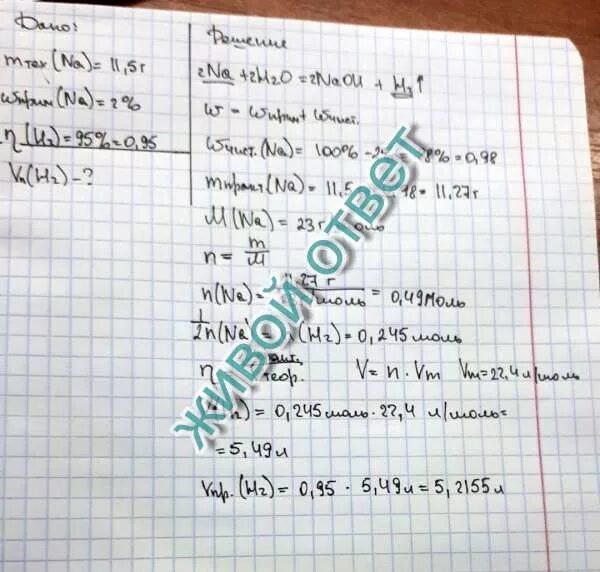 Дано:
m тех (Na) = 11,5 г
ω прим (Na) = 2%
η (H₂) = 95% = 0,95
Vп (H₂) - ?
Решение
2Na + 2H₂O = 2NaOH + H₂↑
ω = ω прим + ω чист.
ω чист. (Na) = 100% - = 98% = 0,98
(Na) = 11,5 = 11,27 г
M (Na) = 23 г
n = m/M
n (Na) = 11,27 г / моль = 0,49 моль
1/2 n (Na) = (H₂) = 0,245 моль
η теор. V = n · Vm Vm = 22,4 л/моль
= 0,245 моль · 22,4 л/моль =
= 5,49 л
Vпр. (H₂) = 0,95 · 5,49 л = 5,2155 л
ЖИВОЙ ОТВЕТ